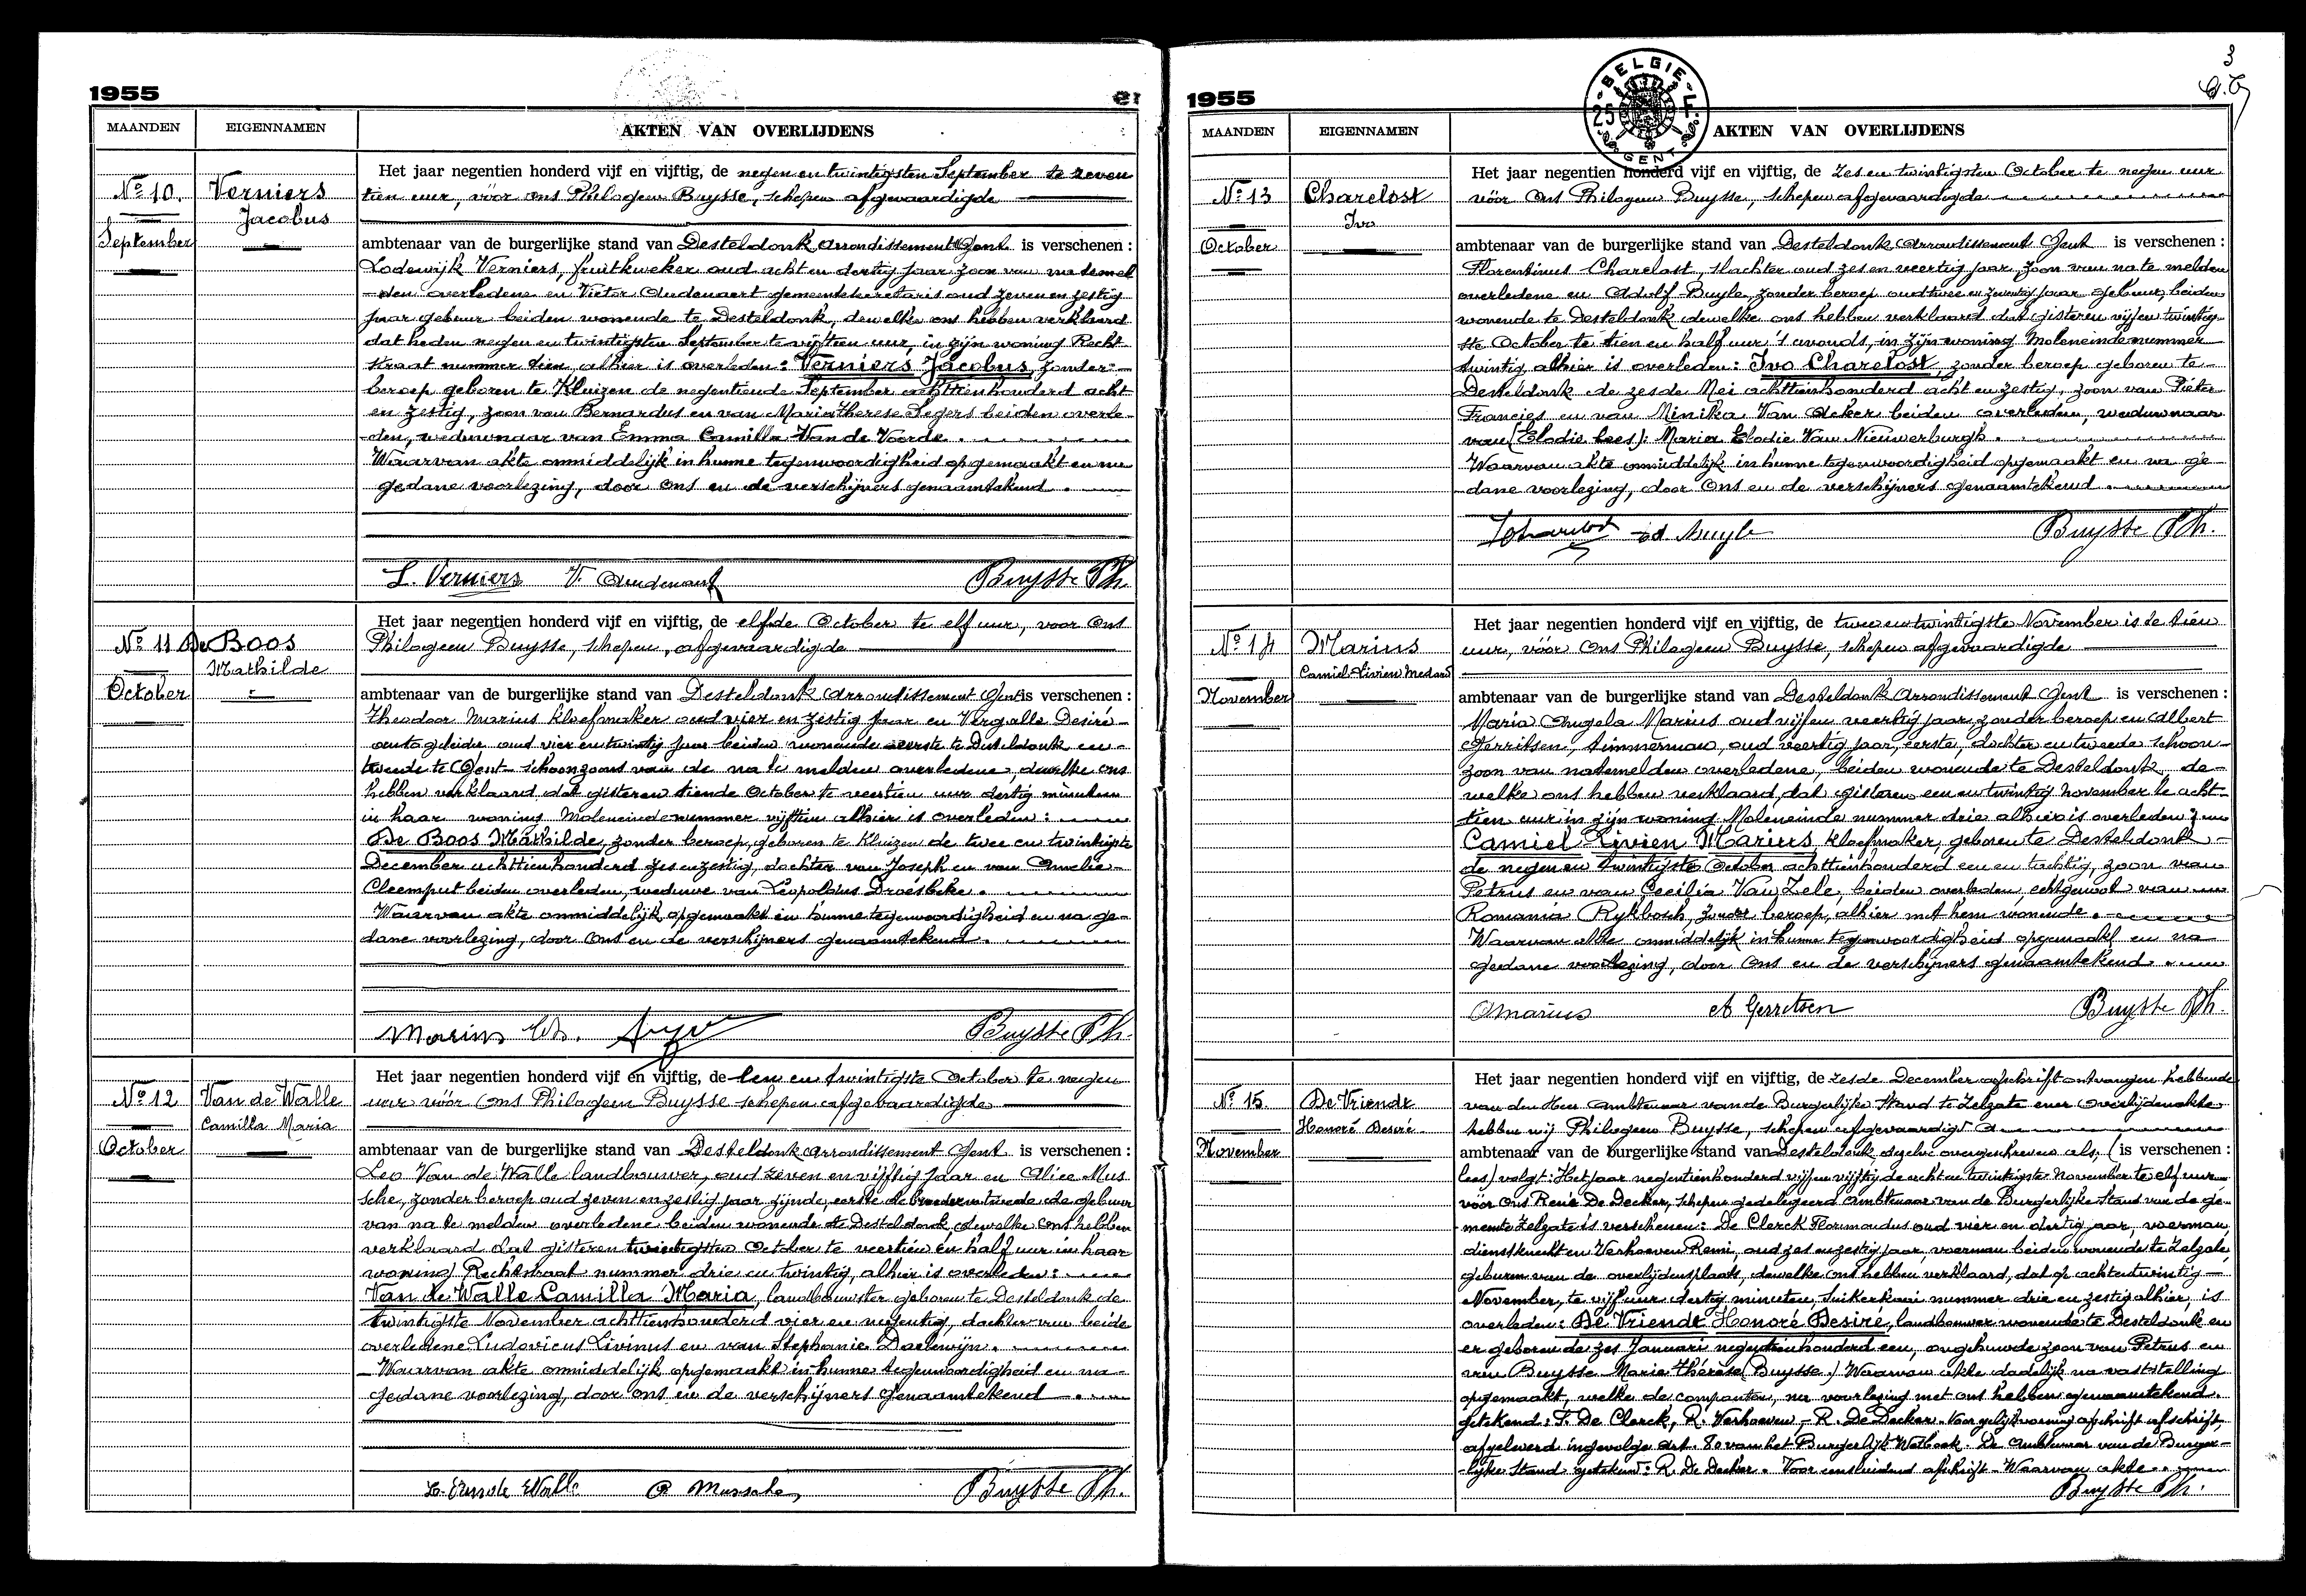 1955
MAANDEN EIGENNAMEN AKTEN VAN OVERLIJDENS
Het jaar negentien honderd vijf en vijftig, de negen en twintigsten September te zeven
Nº 10. Verniers tien uur, vóór ons Philogeen Buysse, schepen afgevaardigde
Jacobus
September ambtenaar van de burgerlijke stand van Desteldonk arrondissement Gent is verschenen :
Lodewijk Verniers, fruitkweker oud acht en dertig jaar zoon van na temel
-den overledene en Victor Audenaert gemeentesecretaris oud zeven en zestig
jaar gebuur beiden wonende te Desteldonk, dewelke ons hebben verklaard
dat heden negen en twintigsten September te vijftien uur, in zijn woning Recht
straat nummer tien alhier is overleden : Verniers Jacobus, zonder
beroep geboren te Kluizen de negentiende September achttienhonderd acht
en zestig, zoon van Bernardus en van Maria Therese Segers beiden overle
-den, weduwnaar van Emma Camilla Van de Voorde.
Waarvan akte onmiddelijk in hunne tegenwoordigheid opgemaakt en na
gedane voorlezing, door ons en de verschijners genaamtekend.
L. Verniers V. Audenaert Buysse Ph.
Het jaar negentien honderd vijf en vijftig, de elfde October te elf uur, voor ons
Nº 11 De Boos Philogeen Buysse, schepen, afgevaardigde
Mathilde
October ambtenaar van de burgerlijke stand van Desteldonk arrondissement Gent is verschenen :
Theodoor Marius kloefmaker oud vier en zestig jaar en Vergalle Desiré
autogeleider oud vier en twintig jaar beiden wonende eerste te Desteldonk en
tweede te Gent schoonzoons van de na te melden overledene, dewelke ons
hebben verklaard dat gisteren tiende October te veertien uur dertig minuten
in haar woning Moleneinde nummer vijftien alhier is overleden :
De Boos Mathilde, zonder beroep, geboren te Kluizen de twee en twintigste
December achttienhonderd zes en zestig, dochter van Joseph en van Amelie
Cleemput beiden overleden, weduwe van Leopoldus Droesbeke.
Waarvan akte onmiddelijk opgemaakt in hunne tegenwoordigheid en na ge-
dane voorlezing, door ons en de verschijners genaamtekend.
Marius Th. Buysse Ph.
Het jaar negentien honderd vijf en vijftig, de een en twintigste October te negen
Nº 12 Van de Walle uur vóór ons Philogeen Buysse schepen afgevaardigde
Camilla Maria
October ambtenaar van de burgerlijke stand van Desteldonk arrondissement Gent is verschenen :
Leo Van de Walle landbouwer, oud zeven en vijftig jaar en Alice Mus
sche, zonder beroep oud zeven en zestig jaar zijnde, eerste de broeder en tweede de gebuur
van na te melden overledene beiden wonende te Desteldonk, dewelke ons hebben
verklaard dat gisteren twintigsten October te veertien en half uur in haar
woning Rechtstraat nummer drie en twintig, alhier is overleden :
Van de Walle Camilla Maria, landbouwster geboren te Desteldonk de
twintigste November achttienhonderd vier en negentig, dochter van beide
overledene Ludovicus Livinus en van Stephanie Daelewijn.
Waarvan akte onmiddelijk opgemaakt in hunne tegenwoordigheid en na
gedane voorlezing, door ons en de verschijners genaamtekend
L. Van de Walle A Mussche Buysse Ph.
3
BELGIE
25
GENT
1955
MAANDEN EIGENNAMEN AKTEN VAN OVERLIJDENS
Het jaar negentien honderd vijf en vijftig, de zes en twintigsten October te negen uur
Nº 13 Charelost vóór ons Philogeen Buysse, schepen afgevaardigde
Ivo
October ambtenaar van de burgerlijke stand van Desteldonk arrondissement Gent is verschenen :
Florentinus Charelost, slachter oud zes en veertig jaar, zoon van na te melden
overledene en Adolf Buyle, zonder beroep oud twee en zeventig jaar gebuur, beiden
wonende te Desteldonk dewelke ons hebben verklaard dat gisteren vijf en twintig
ste October te tien en half uur 's avonds, in zijn woning Moleneinde nummer
twintig alhier is overleden : Ivo Charelost, zonder beroep geboren te
Desteldonk de zesde Mei achttienhonderd acht en zestig, zoon van Pieter
Francies en van Minika Van Acker beiden overleden, weduwnaar
van (Elodie lees): Maria Elodie Van Nieuwerburgh.
Waarvan akte onmiddelijk in hunne tegenwoordigheid opgemaakt en na ge
dane voorlezing, door ons en de verschijners genaamtekend.
ad. Buyle Buysse Ph.
Het jaar negentien honderd vijf en vijftig, de twee en twintigste November is te tien
Nº 14 Marius uur, vóór ons Philogeen Buysse, schepen afgevaardigde
Camiel Livien Medard
November ambtenaar van de burgerlijke stand van Desteldonk arrondissement Gent is verschenen :
Maria Angela Marius oud vijf en veertig jaar, zonder beroep en Albert
Gerritsen, timmerman, oud veertig jaar, eerste, dochter en tweede schoon
zoon van natemelden overledene, beiden wonende te Desteldonk, de-
welke ons hebben verklaard, dat gisteren een en twintig november te acht
tien uur in zijn woning Moleneinde nummer drie alhier is overleden :
Camiel Livien Marius, kloefmaker, geboren te Desteldonk
de negen en twintigste October achttienhonderd een en tachtig, zoon van
Petrus en van Cecilia Van Zele, beiden overleden, echtgenoot van
Romania Rykbosch, zonder beroep, alhier met hem wonende.
Waarvan akte onmiddelijk in hunne tegenwoordigheid opgemaakt en na
gedane voorlezing, door ons en de verschijners genaamtekend.
A Marius A Gerritsen Buysse Ph.
Het jaar negentien honderd vijf en vijftig, de zesde December afschrift ontvangen hebbende
Nº 15. De Vriendt van den Heer ambtenaar van de Burgerlijke Stand te Zelzate ener overlijdenakte
Honoré Desiré hebben wij Philogeen Buysse, schepen afgevaardigd
November ambtenaar van de burgerlijke stand van Desteldonk, dezelve overgeschreven als, (is verschenen :
lees) volgt : Het jaar negentienhonderd vijf en vijftig de acht en twintigste November te elf uur
vóór ons René De Decker, schepen gedelegeerd ambtenaar van de Burgerlijke Stand van de ge-
meente Zelzate is verschenen : De Clerck Florimondus oud vier en dertig jaar, voerman,
dienstknecht en Verhoeven Remi, oud zes en zestig jaar, voerman beiden wonende te Zelzate
geburen van de overlijdensplaats, dewelke ons hebben verklaard, dat op achtentwintig
November, te vijf uur dertig minuten, Suikerkaai nummer drie en zestig alhier, is
overleden : De Vriendt Honoré Desiré, landbouwer wonende te Desteldonk en
er geboren de zes Januari negentienhonderd een, ongehuwde zoon van Petrus en
van Buysse Marie Thérèse (Buysse.) Waarvan akte dadelijk na vaststelling
opgemaakt, welke de comparanten, na voorlezing met ons hebben genaamtekend.
getekend : F. De Clerck, R. Verhoeven - R. De Decker. Voor gelijkvormig afschrift afschrift,
afgeleverd ingevolge art. 80 van het Burgerlijk Wetboek. De ambtenaar van de Burger-
lijke Stand getekend : R. De Decker. Voor eensluidend afschrift - Waarvan akte.
Buysse Ph.